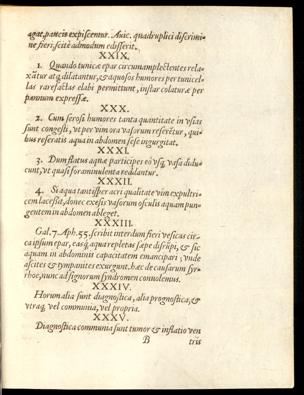 agat, paucis expiscemur. Avic. quadruplici discrimi-
ne fieri scitè admodum edisserit.
XXIX.
1. Quando tunicæ epar circumamplectentes rela-
xãtur atq; dilatantur, & aquosos humores per tunicel-
las rarefactas elabi permittunt, instar colaturæ per
pannum expressæ.
XXX.
2. Cum serosi humores tanta quantitate in vsias
sunt congesti, vt per vim ora vasorum referẽtur, qui-
bus reseratis aqua in abdomen sese ingurgitat.
XXXI.
3. Dum flatus aquæ participes eò vsq; vasa didu-
cunt, vt quasi foraminulenta reddantur.
XXXII.
4. Si aqua tantisper acri qualitate vim expultri-
cem lacessit, donec exesis vasorum osculis aquam pun-
gentem in abdomen ableget.
XXXIII.
Gal. 7. Aph. 55. scribit interdum fieri vesicas cir-
ca ipsum epar, easq; aqua repletas sæpe disrũpi, & sic
aquam in abdominis capacitatem emancipari; vnde
ascites & tympanites exurgunt. hæc de causarum syr-
rhoe, nunc ad signorum syndromen convolemus.
XXXIV.
Horum alia sunt diagnostica, alia prognostica, &
vtraq; vel communia, vel propria.
XXXV.
Diagnostica communia sunt tumor & inflatio ven
B tris